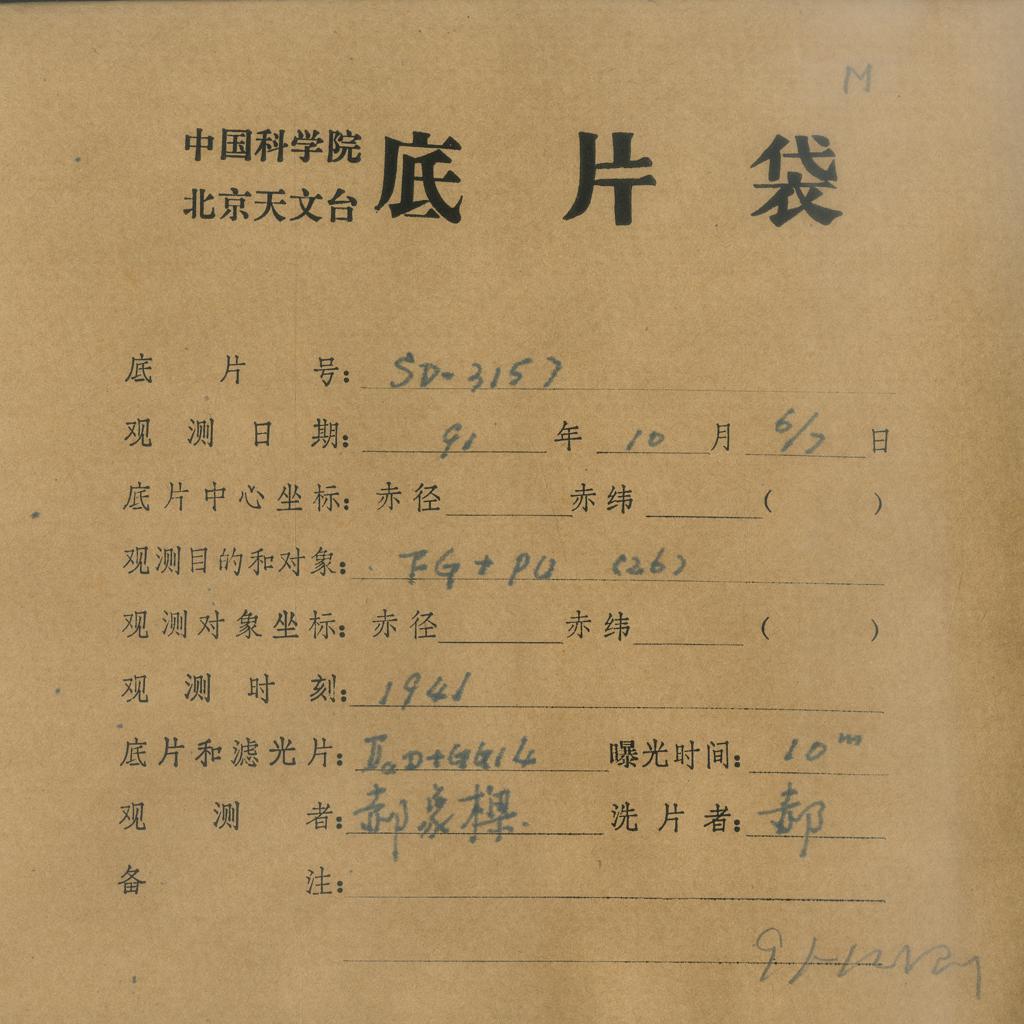 M
中国科学院
北京天文台
底片袋
底片号：SD-3157
观测日期：91年10月6/7日
底片中心坐标：赤径 赤纬 ( )
观测目的和对象：FG+PU (26)
观测对象坐标：赤径 赤纬 ( )
观测时刻：1941
底片和滤光片：IIaD+GG14 曝光时间：10m
观测者：郝象樑 洗片者：郝
备注：